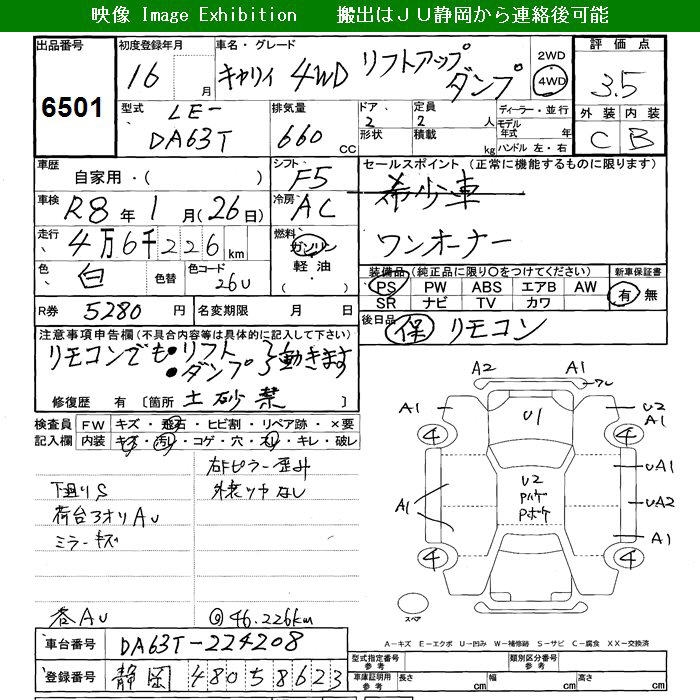 映像 Image Exhibition　　搬出はＪＵ静岡から連絡後可能
出品番号 6501
初度登録年月 16 月
車名・グレード キャリイ 4WD リフトアップ ダンプ
2WD 4WD
評価点 3.5
外装 C 内装 B
型式 LE- DA63T
排気量 660 CC
ドア 2 形状
定員 2 人 積載 kg
ディーラー・並行
モデル年式 年
ハンドル 左・右
車歴 自家用・( )
シフト F5
セールスポイント (正常に機能するものに限ります)
希少車
ワンオーナー
車検 R8年 1月(26日)
冷房 AC
走行 4万6千226km
燃料 ガソリン 軽油・
色 白 色替 色コード 26U
装備品(純正品に限り○をつけてください)
PS PW ABS エアB AW
SR ナビ TV カワ
新車保証書 有 無
R券 5280円 名変期限 月 日
後日品 保 リモコン
注意事項申告欄(不具合内容等は具体的に記入して下さい)
リモコンでも・リフト
・ダンプ 動きます
修復歴 有 〔箇所 土砂禁 〕
検査員記入欄
FW キズ・飛石・ヒビ割・リペア跡・×要
内装 キズ・汚レ・コゲ・穴・スレ・キレ・破レ
右Bピラー歪み
下廻りS 外装ツヤなし
荷台3オリAU
ミラーキズ
巻AU @46.226km
A2 A1
A1 U1 U2 A1
4 4
U2 UA1
A1 Pハゲ UA2
Pボケ
A1
4 4
スペア
A－キズ E－エクボ U－凹み W－補修跡 S－サビ C－腐食 XX－交換済
車台番号 DA63T-224208
登録番号 静岡 480 5 8623
型式指定番号 参考
類別区分番号 参考
車庫証明用 参考 長さ cm 幅 cm 高さ cm